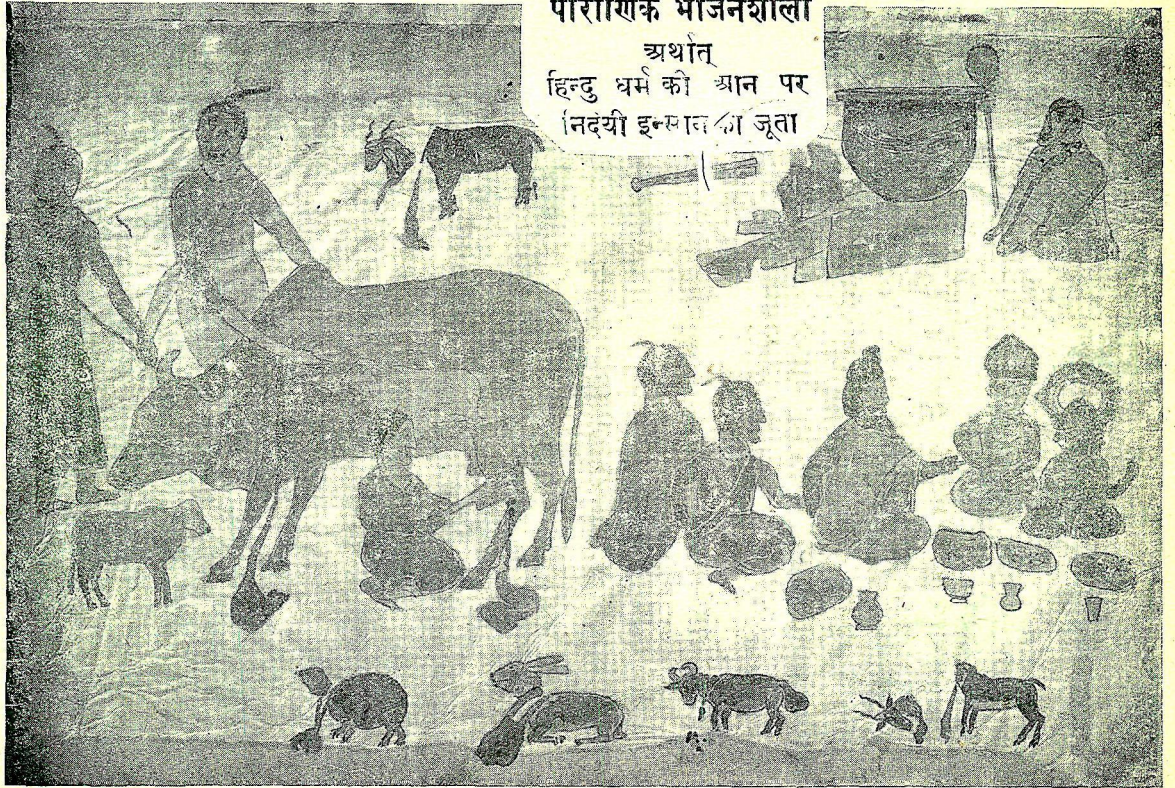 पौराणिक भोजनशाला
अर्थात्
हिन्दु धर्म की आन पर
निर्दयी इन्सान का जूता